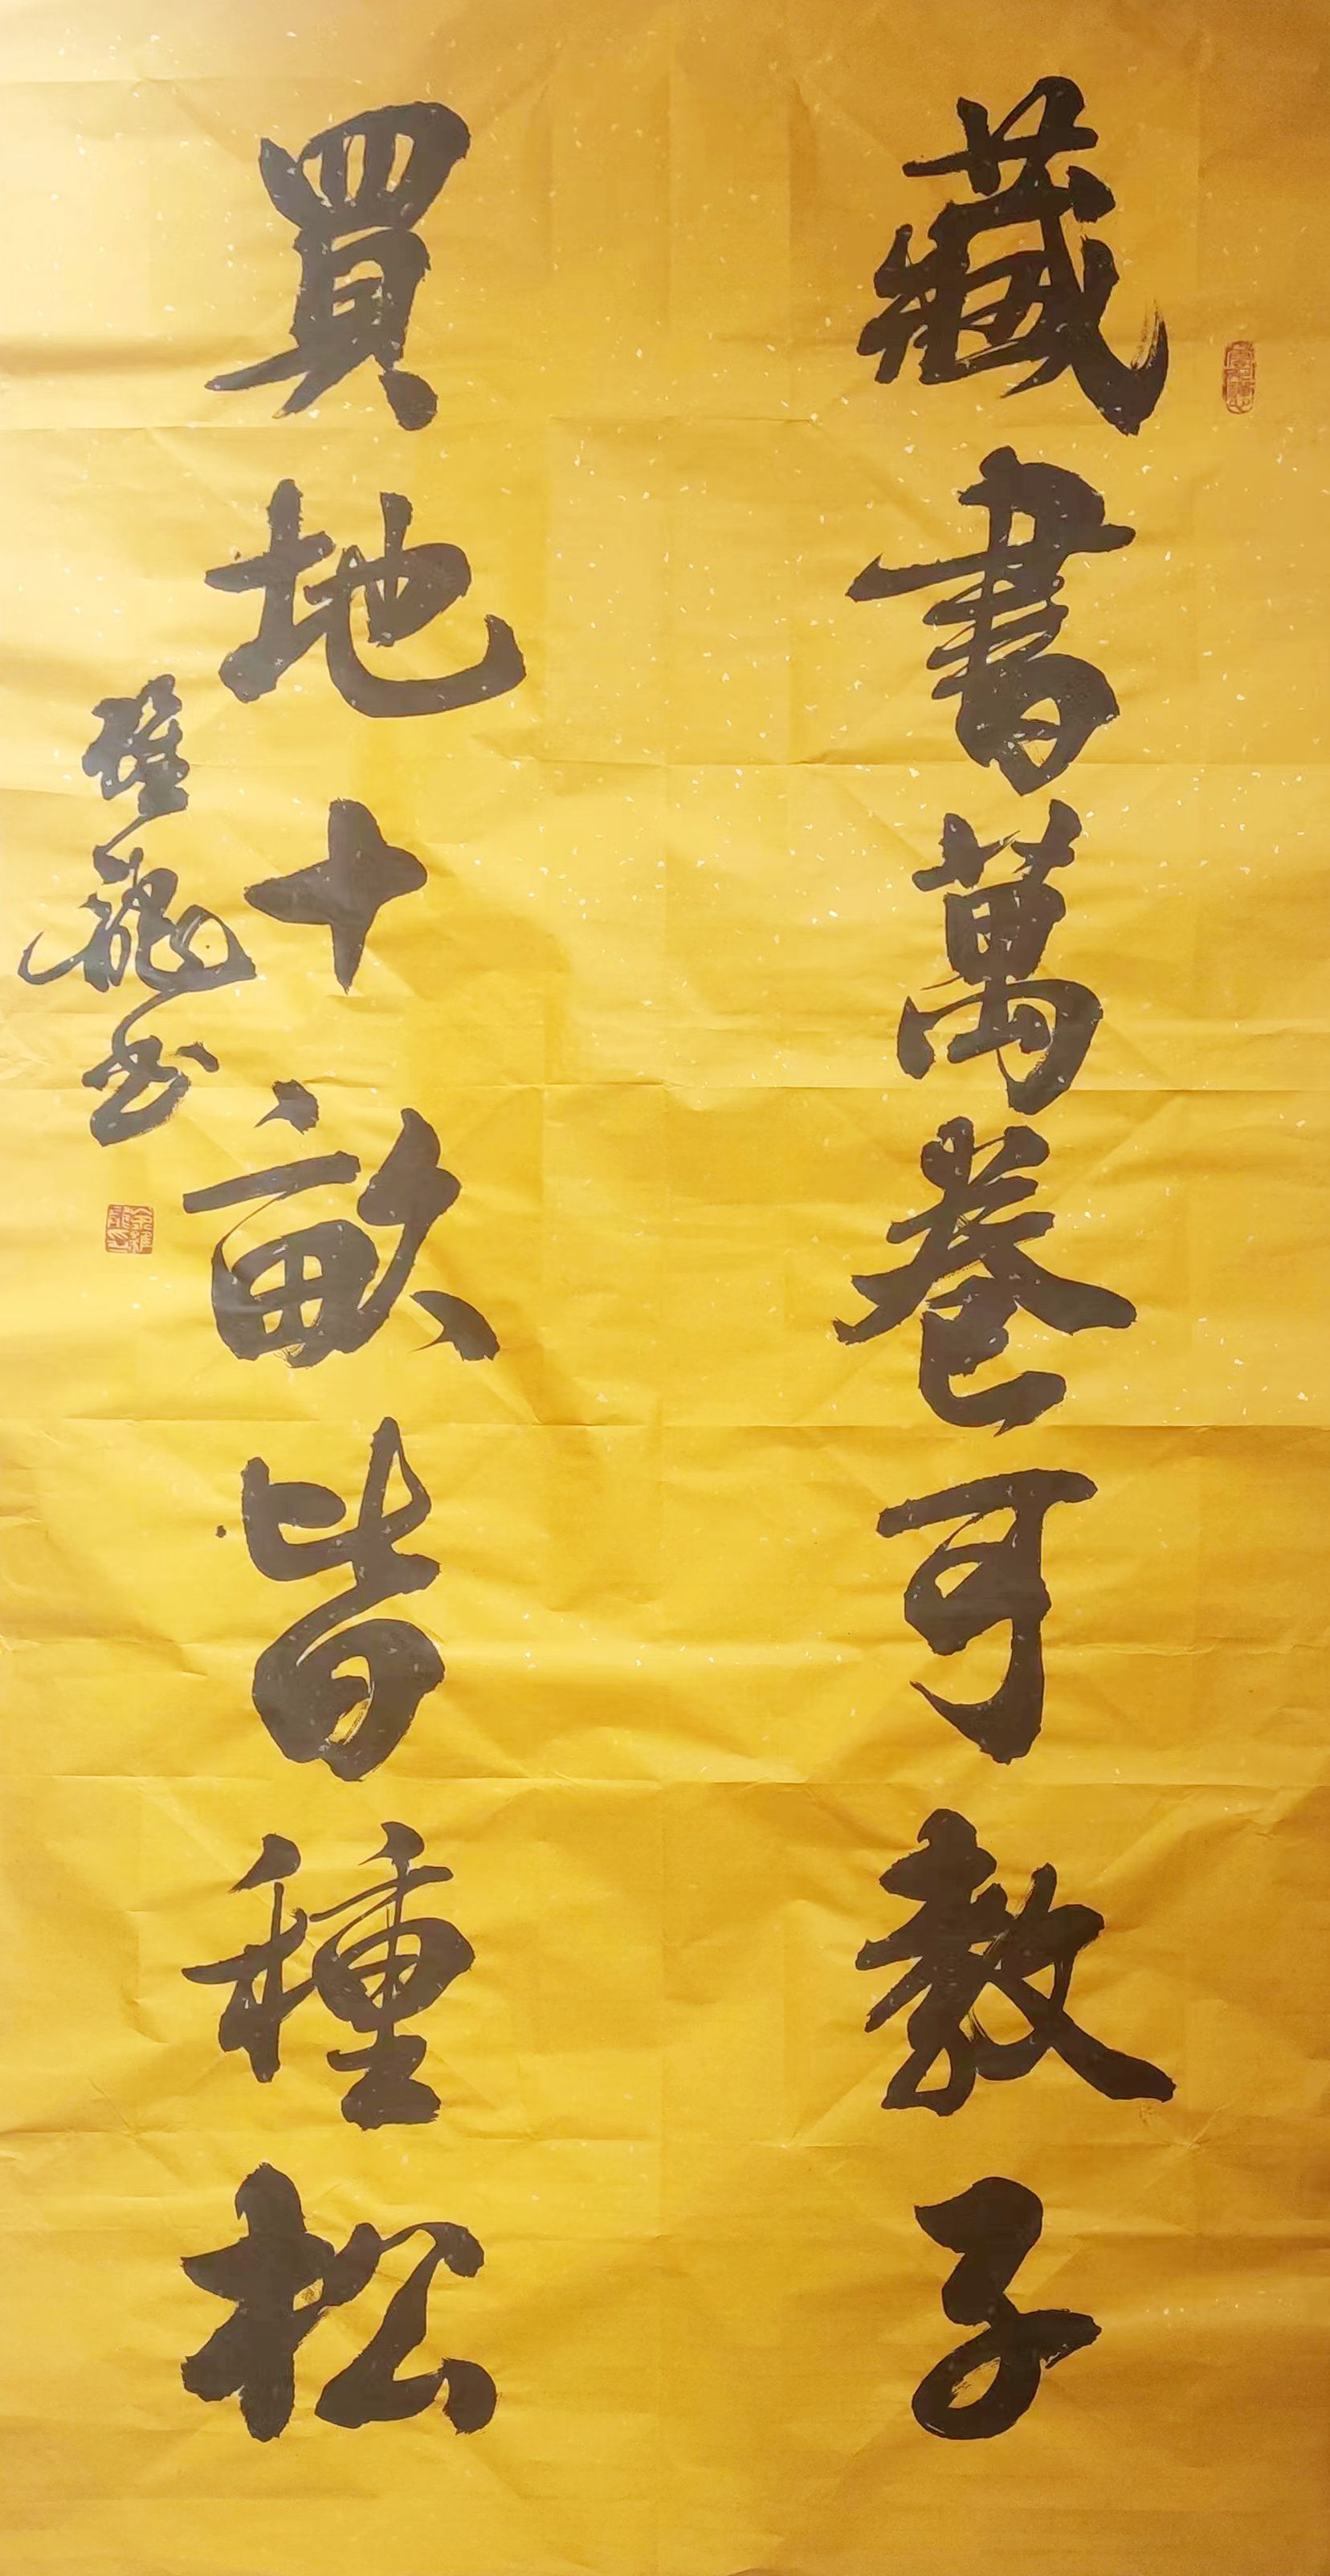 藏書萬卷可教子
買地十畝皆種松
雄龍書